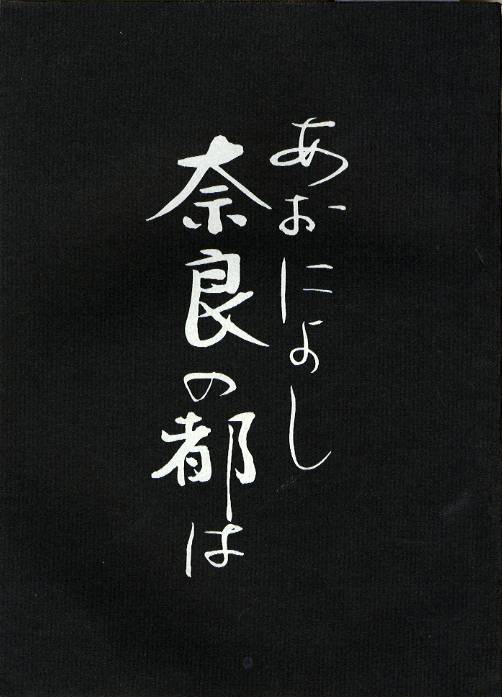 あおによし
奈良の都は